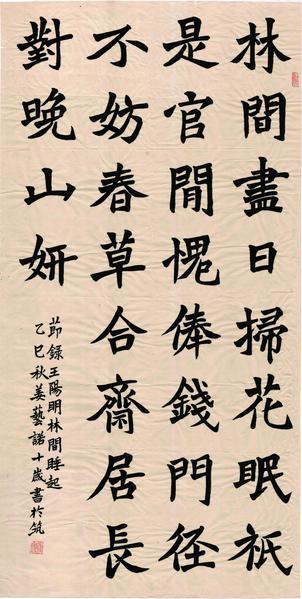 林間盡日掃花眠祇
是官閒愧俸錢門径
不妨春草合齋居長
對晚山妍
節錄王陽明林間睡起
乙巳秋姜藝諾十歲書於筑